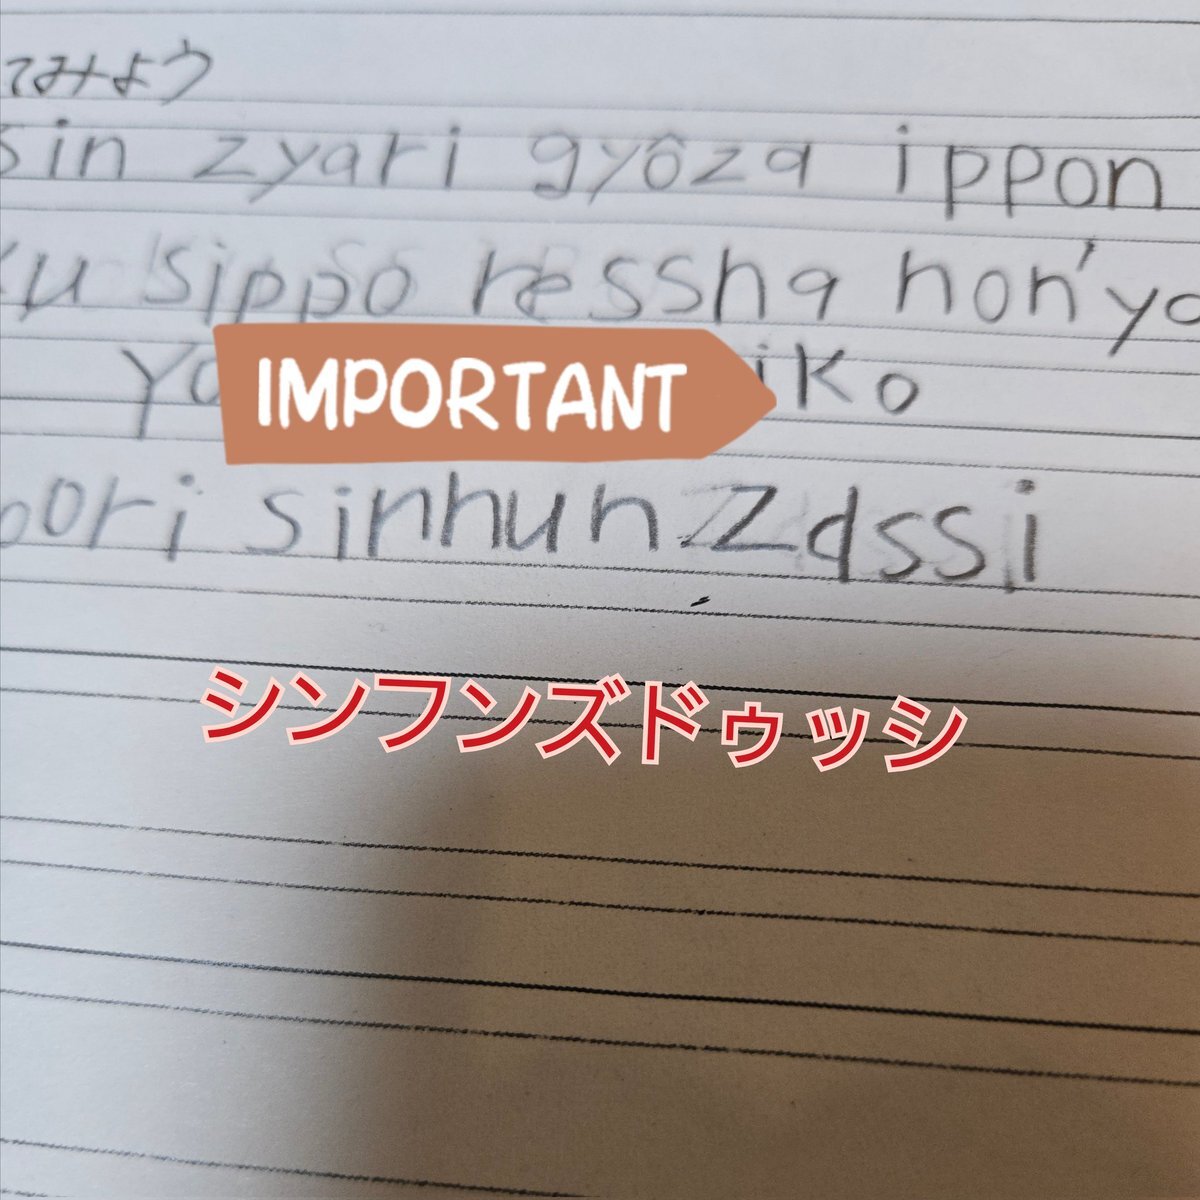 てみよう
sin zyari gyôza ippon
ku sippo ressha hon'ya
IMPORTANT
iko
oori sinhun zassi
シンフンズドゥッシ